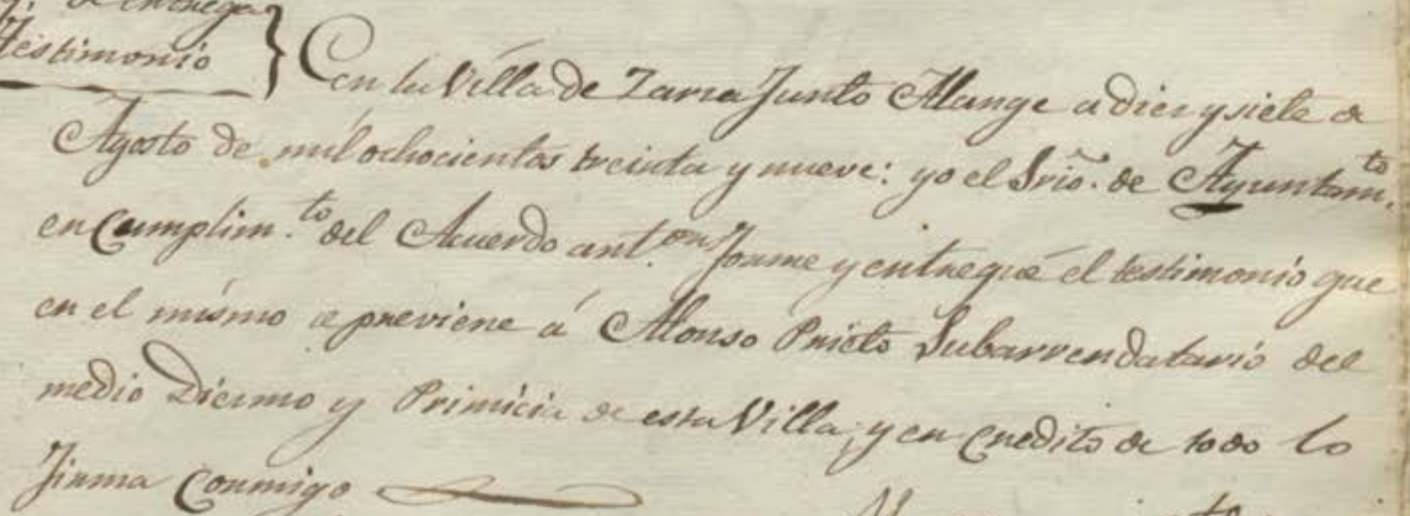 de entrega
testimonio } En la Villa de Zarza Junto Alange a diez y siete de
Agosto de mil ochocientos treinta y nueve: yo el Srio. de Ayuntam.to
en Cumplim.to del Acuerdo ant.or forme y entregué el testimonio que
en el mismo se previene á Alonso Prieto Subarrendatario del
medio Diezmo y Primicia de esta Villa, y en credito de todo lo
firma Conmigo